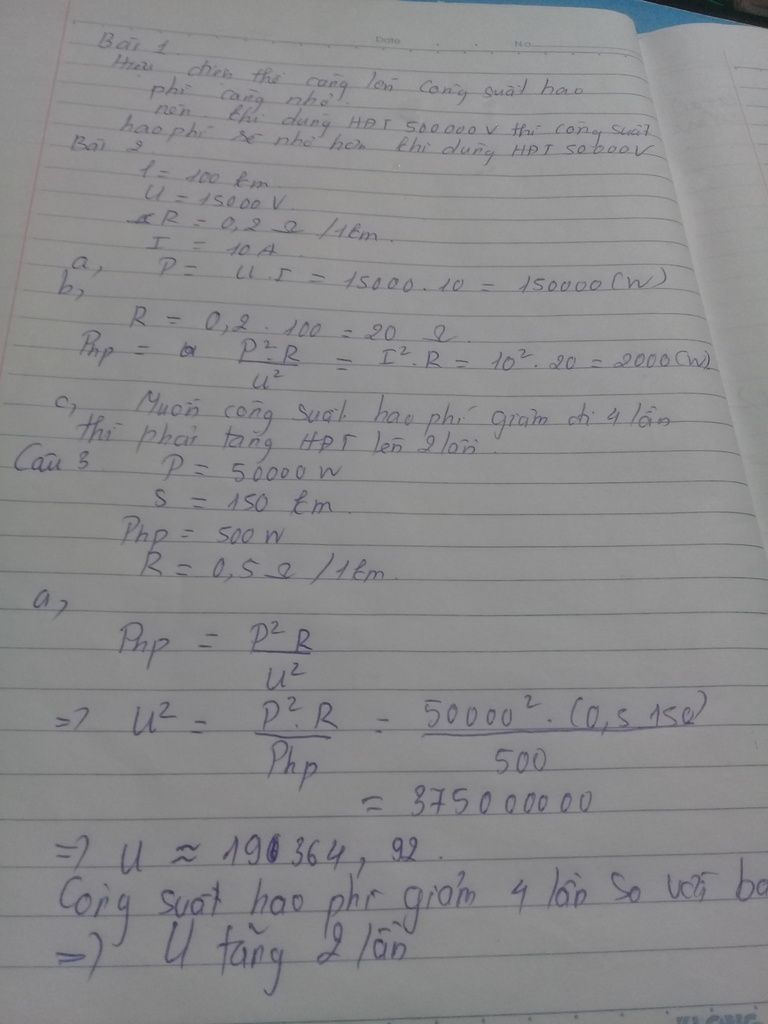 Date No
Bài 1
Hiệu điện thế càng lớn công suất hao
phí càng nhỏ.
nên khi dùng HĐT 500000V thì công suất
hao phí sẽ nhỏ hơn khi dùng HĐT 50000V
Bài 2
l = 100 km
U = 15000 V
R = 0,2 Ω /1km.
I = 10 A
a, P = U.I = 15000.10 = 150000(W)
b,
R = 0,2.100 = 20 Ω
Php = P².R / U² = I².R = 10².20 = 2000(W)
c, Muốn công suất hao phí giảm đi 4 lần
thì phải tăng HĐT lên 2 lần.
Câu 3 P = 50000 W
S = 150 km.
Php = 500 W
R = 0,5 Ω /1km.
a,
Php = P² R / U²
=> U² = P².R / Php = 50000².(0,5 150) / 500
= 375000000
=> U ≈ 19364,92.
Công suất hao phí giảm 4 lần so với ba
=> U tăng 2 lần